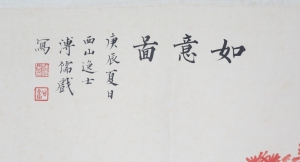 如意圖
庚辰夏日
西山逸士
溥儒戲
寫